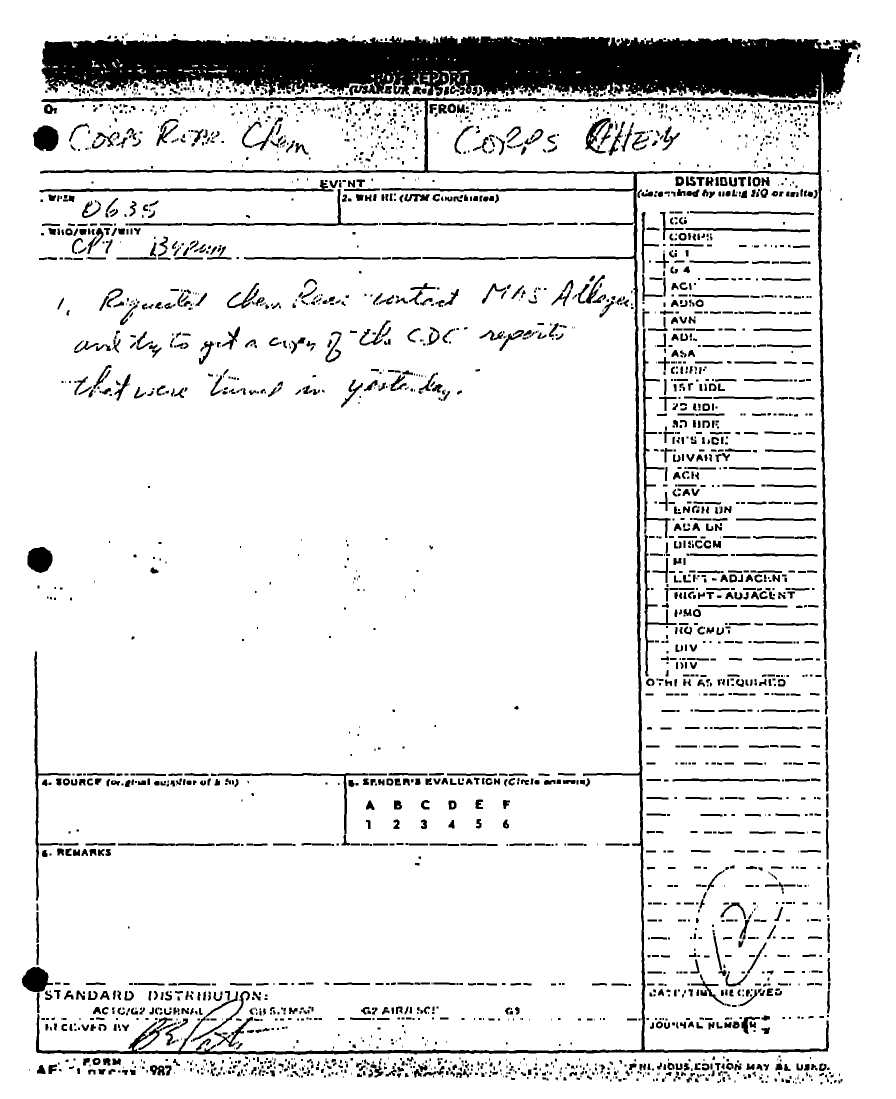 SPOT REPORT
(USAREUR Reg 380-305)
O:
FROM:
Corps Rear Chem
CORPS CHEM
EVENT
DISTRIBUTION
(determined by using HQ or units)
1. WHEN
0635
2. WHERE (UTM Coordinates)
. WHO/WHAT/WHY
CPT Bypum
1. Requested Chem Rear contact MAS
and try to get a copy of the CDC reports
that were turned in yesterday.
CG
CORPS
G 1
G 4
AVN
ASA
1ST BDE
2D BDE
3D BDE
RES BDE
DIVARTY
ACR
CAV
ENGR BN
ADA BN
DISCOM
MI
LEFT - ADJACENT
RIGHT - ADJACENT
PMO
HQ CMDT
DIV
DIV
OTHER AS REQUIRED
4. SOURCE (original supplier of info)
5. SENDER'S EVALUATION (Circle answers)
A B C D E F
1 2 3 4 5 6
6. REMARKS
2
STANDARD DISTRIBUTION:
G2 JOURNAL
G2 AIR
G3
DATE/TIME RECEIVED
RECEIVED BY
JOURNAL NUMBER
FORM
987
PREVIOUS EDITION MAY BE USED.